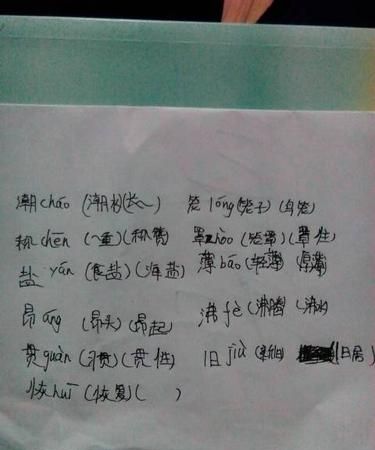 潮cháo (潮水)(长～) 笼lóng(笼子)(鸟笼)
称chēn (～重)(称赞) 罩zhào (笼罩)(罩住)
盐 yán (食盐)(海盐) 薄báo(轻薄)(厚薄)
昂áng (昂头)(昂起) 沸fè (沸腾)(沸水)
贯guàn (习贯)(贯性) 旧jiù (新旧) (旧居
恢huī (恢复)( )